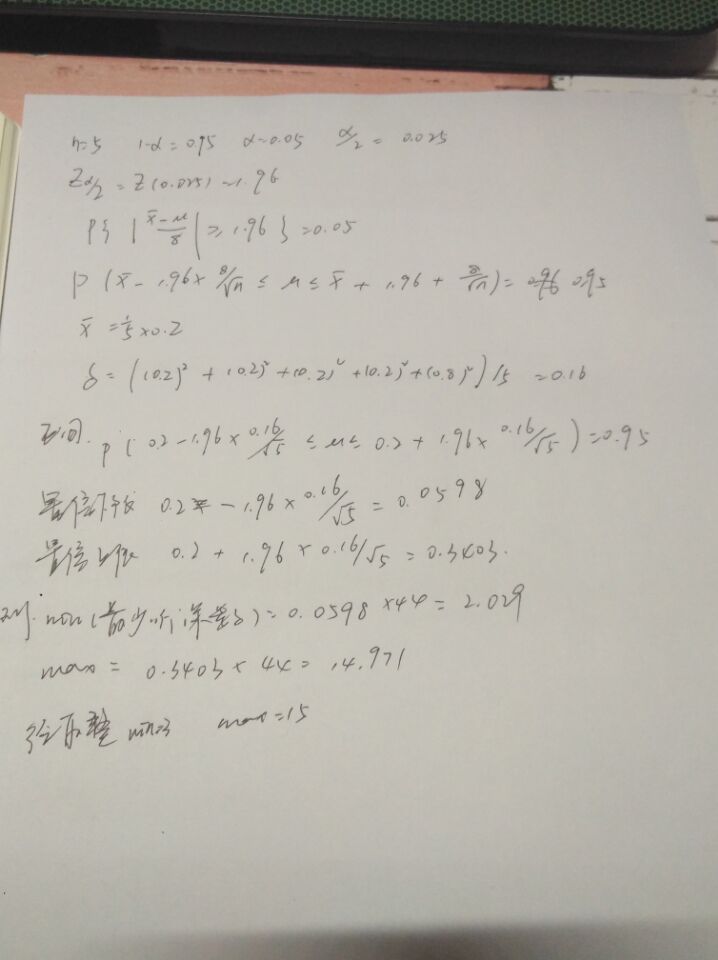 n=5 1-α=0.95 α=0.05 α/2=0.025
Zα/2=Z(0.025)=1.96
P{|x̄-μ/8|≥1.96}=0.05
P(x̄-1.96×8/√n≤μ≤x̄+1.96+8/√n)= 0.95
x̄=1/5×0.2
δ=((0.2)²+(0.2)²+(0.2)²+(0.2)²+(0.8)²)/5=0.16
区间. P(0.2-1.96×0.16/√5≤μ≤0.2+1.96×0.16/√5)=0.95
置信下限 0.2-1.96×0.16/√5=0.0598
置信上限 0.2+1.96×0.16/√5=0.3403.
则. min(最少听课量)=0.0598×44=2.029
max=0.3403×44=14.971
取整 min=3 max=15